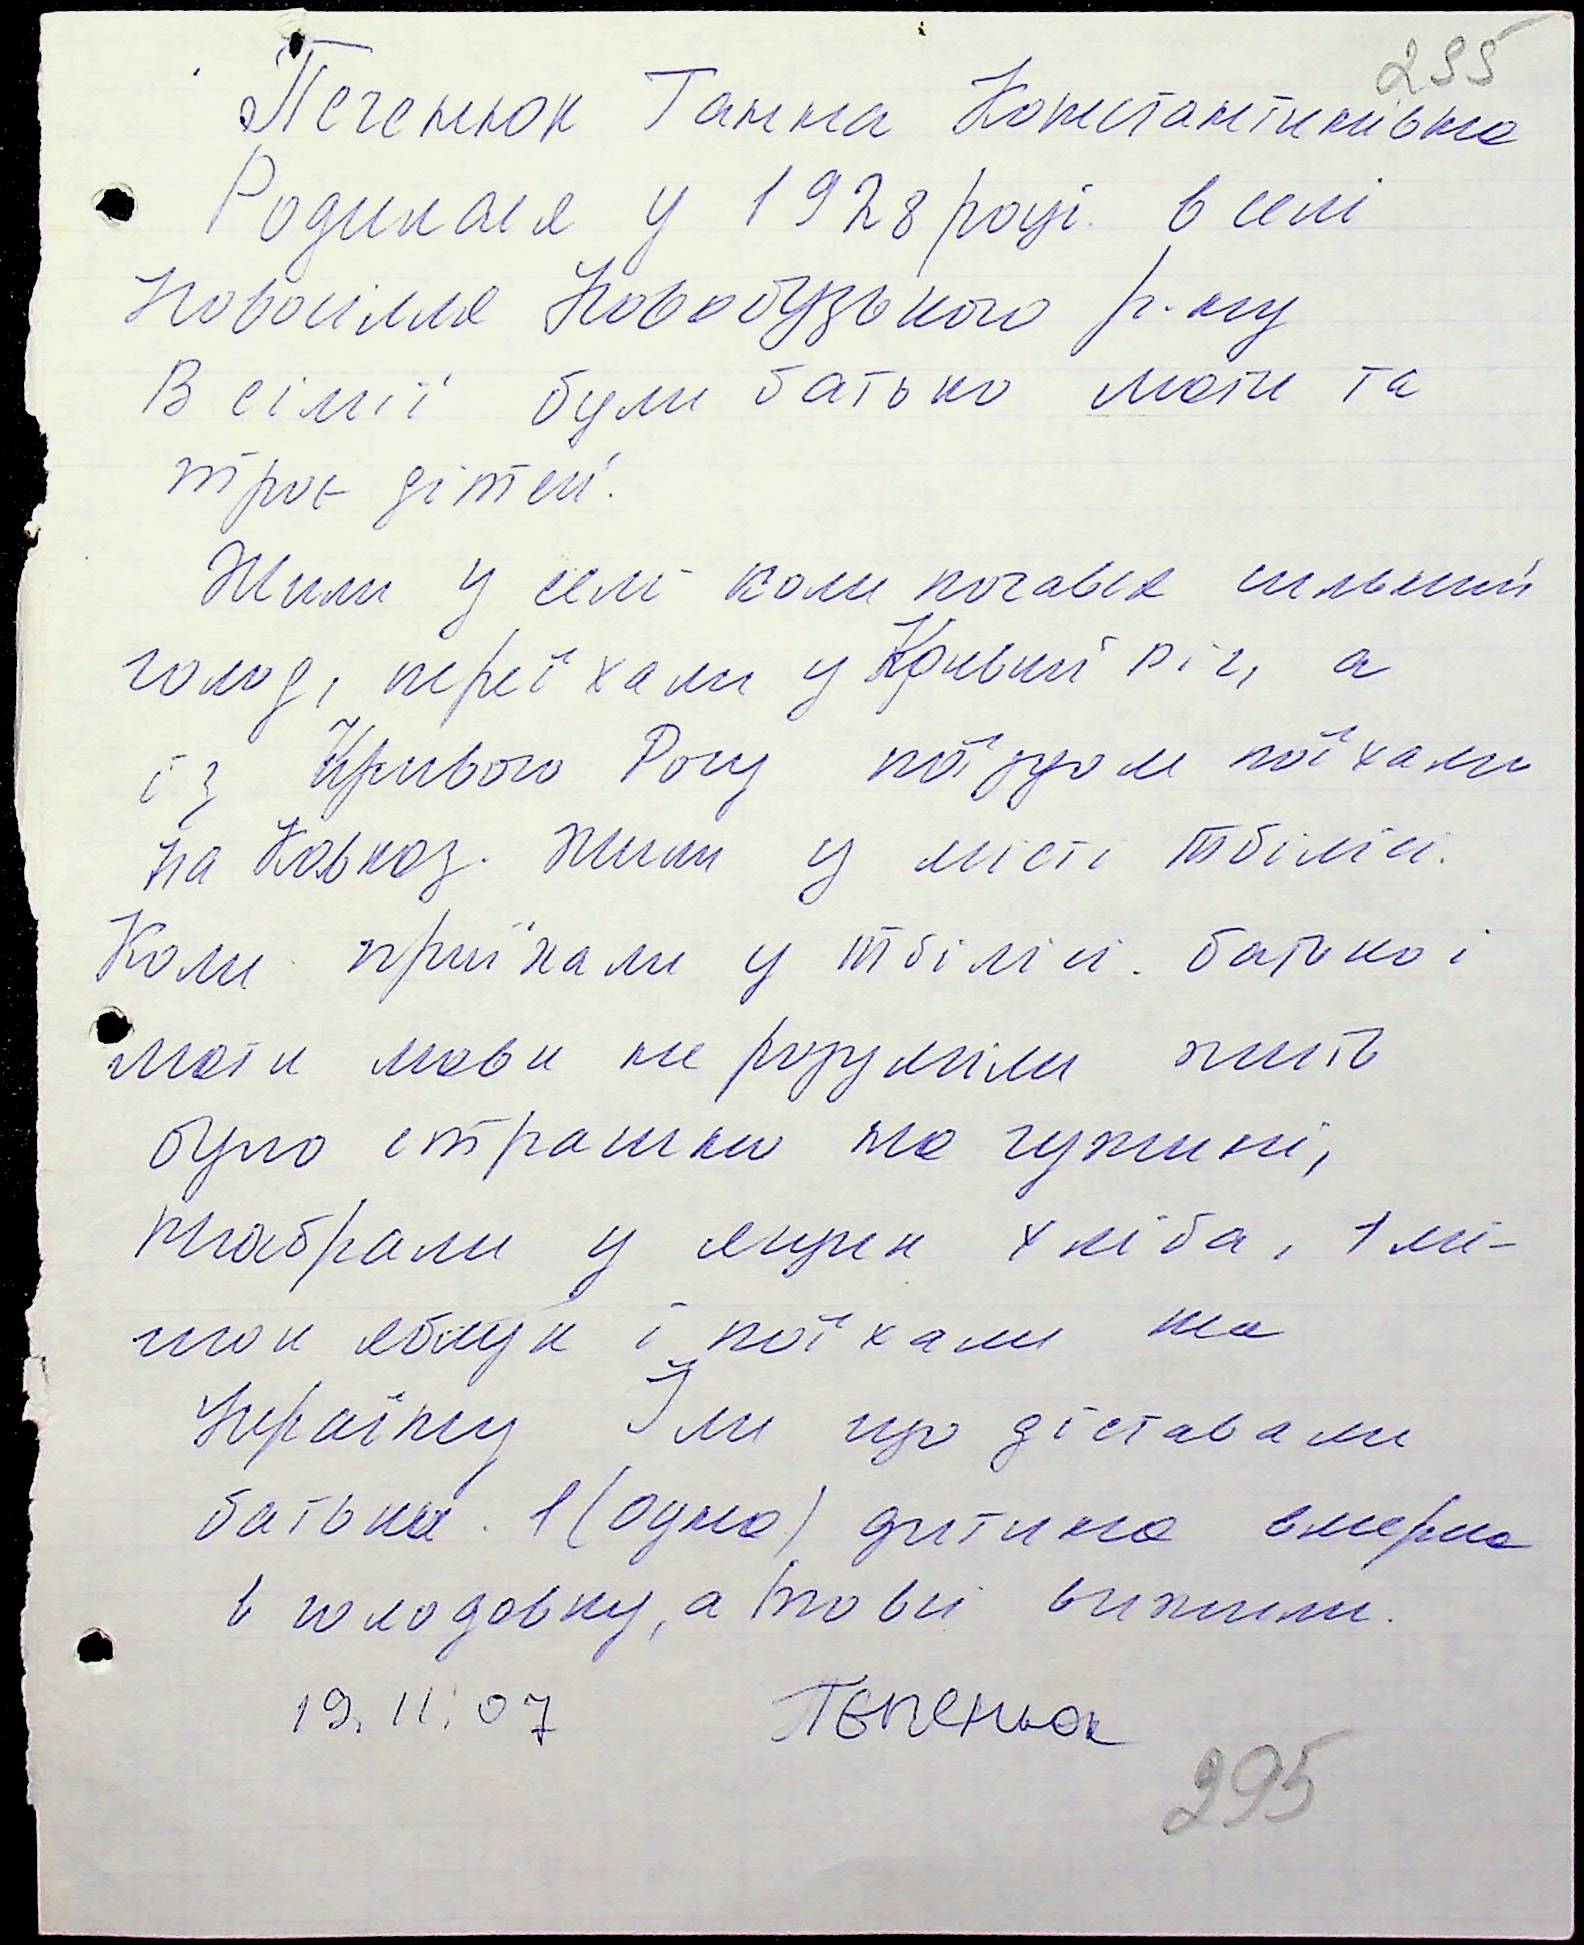 295
Печенюк Ганна Констянтинівна
Родилася у 1928 році. в селі
Новосілля Новобузького р-ну
В сімії були батько мати та
троє дітей.
Жили у селі коли почався сильний
голод, переїхали у Кривий ріг, а
із Кривого Рогу поїздом поїхали
на Кавказ. Жили у місті Тбілісі.
Коли приїхали у Тбілісі. батько і
мати мови не розуміли жить
було страшно на чужині,
набрали у ящик хліба, 1 мі-
шок яблук і поїхали на
Україну Їли що діставали
батьки. 1 (одна) дитина вмерла
в голодовку, а двоє вижили.
19.11.07 Печенюк
295